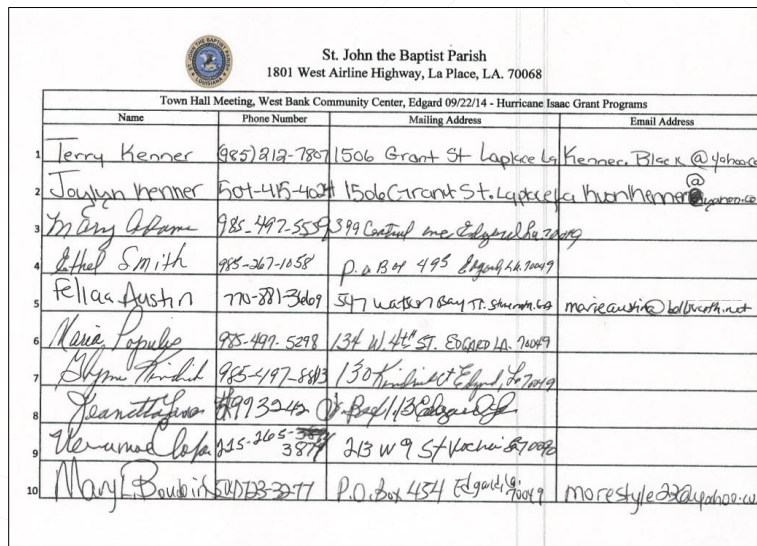 St. John the Baptist Parish
1801 West Airline Highway, La Place, LA. 70068
Town Hall Meeting, West Bank Community Center, Edgard 09/22/14 - Hurricane Isaac Grant Programs
Name Phone Number Mailing Address Email Address
1 Terry Kenner (985) 212-7807 1506 Grant St Laplace La Kenner.Black@yahoo.co
2 Joylyn Kenner 504-415-4024 1506 Grant St. Laplace La @yahoo.co
3 Mary Adams 985-497-5559 399 Central Edgard La. 70049
4 Ethel Smith 985-267-1058 P.O Box 495 Edgard, LA. 70049
5 Austin 770-881-3669 547 Watson Bay
6 Maria Populis 985-497-5298 134 W. 4th ST. EDGARD LA. 70049
7 985-497-8813 130 Edgard, La 70049
8 Box 113 Edgard
9 225-265-3879 213 W 9 St 70090
10 Mary L. Boudoin 504723-3277 P.O. Box 454 Edgard, La. 70049 morestyle22@yahoo.co